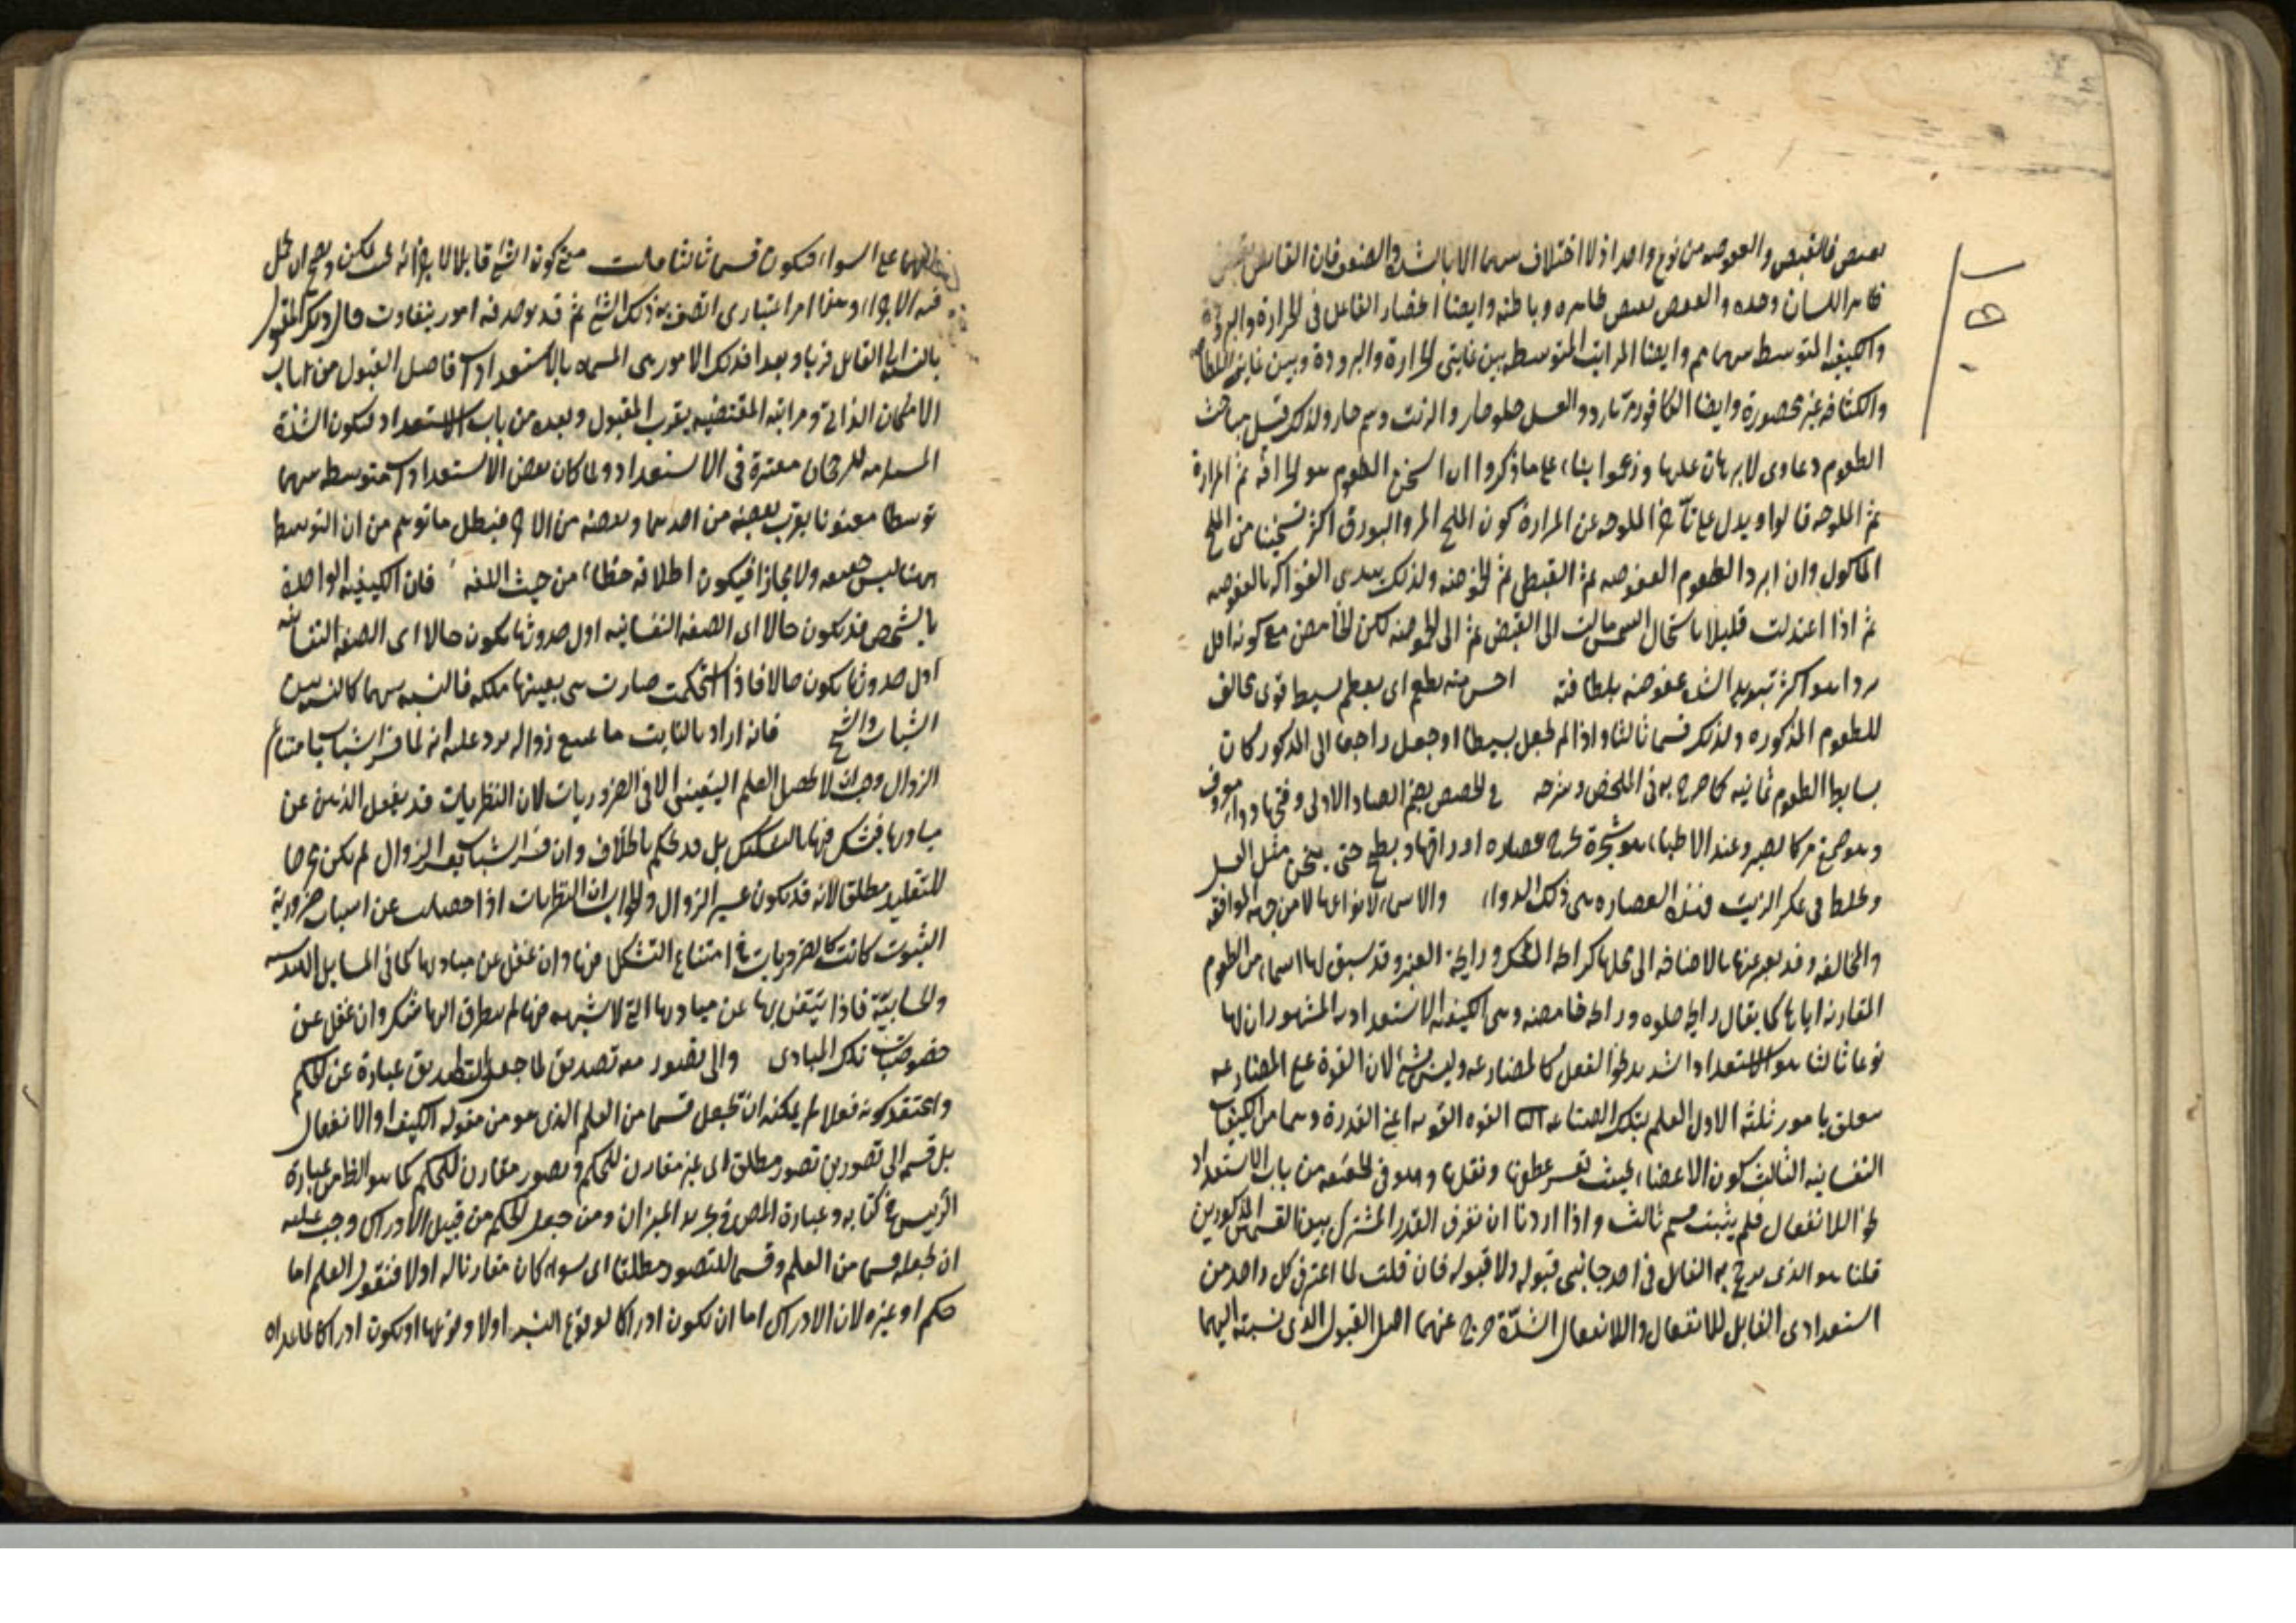 فالقبض والعفوصه من نوع واحد اذ لا اختلاف الا بالشدة والضعف فان القابض يقبض
ظاهر اللسان وحده والعفص يقبض ظاهره وباطنه وايضا انحصار الفاعل فى الحرارة والبرودة
والكيفيه المتوسطه بينهما مم وايضا المراتب المتوسطه بين غايتى الحرارة والبرودة وبين غايتى اللطافه
والكثافه غير محصورة وايضا الكافور مر بارد والعسل حلو حار والزيت دسم حار ولذلك قيل مباحث
الطعوم دعاوى لا برهان عليها وزعموا بناء على ما ذكروا ان اسخن الطعوم هو الحرافه ثم المرارة
ثم الملوحه قالوا ويدل على تأخر الملوحه عن المرارة كون الملح المر والبورق اكثر تسخينا من الملح
الماكول وان ابرد الطعوم العفوصه ثم القبض ثم الحموضه ولذلك الفواكه بالعفوصه
ثم اذا اعتدلت قليلا باسخان الشمس مالت الى القبض ثم الى الحموضه لكن الحامض مع كونه اقل
بردا هو اكثر تبريدا عفوصته بلطافته احس منه بطعم اى بطعم بسيط قوى مخالف
للطعوم المذكوره ولذلك قسما ثالثا واذا لم يجعل بسيطا او جعل راجعا الى المذكور كان
بسايط الطعوم ثمانيه كما صرح به فى الملخص وشرحه فى الحضض بضم الضاد الاولى وفتحها دواء معروف
وهو صمغ مر كالصبر وعند الاطباء هو شجرة عصاره اوراقها ويطبخ حتى يثخن مثل العسل
ويخلط فى عكر الزيت فتلك العصاره هى ذلك الدواء ولا اسماء لانواعها الا من جهة الموافقه
والمخالفه وقد يعبر عنها بالاضافه الى محلها كرائحة المسك ورايحة العنبر وقد سبق لها اسماء من الطعوم
المقارنه اياها كما يقال رايحه حلوه ورايحه حامضه وهى الكيفيه الاستعداديه المشهور ان لها
نوعا ثالثا هو الاستعداد الشديد نحو الفعل كالمصارعه وليس بشئ لان القوة على المصارعه
يتعلق بامور ثلثه الاول العلم بتلك الصناعه الثانى القوه القويه اعنى القدرة وهما من الكيفيات
النفسانيه الثالث كون الاعضاء بحيث يعسر عطفها ونقلها وهو فى الحقيقه من باب الاستعداد
نحو اللاانفعال فلم يثبت قسم ثالث واذا اردنا ان نعرف القدر المشترك بين القسمين المذكورين
قلنا هو الذى يترجح به القابل فى احد جانبى قبوله ولا قبوله فان قلت لما اعتبر فى كل واحد من
استعدادى القابل للانفعال واللاانفعال الشدة خرج عنهما اصل القبول الذى نسبته اليهما
على السواء فيكون قسما ثالثا قلت معنى كون الشئ قابلا لاخر انه يمكن ويصح ان يحل
فيه الاخر وهذا امر اعتبارى اتصف به ذلك الشئ ثم قد يوجد فيه امور يتفاوت حال ذلك المقبول
بالنسبه الى القابل قربا وبعدا فتلك الامور هى المسماه بالاستعدادات فاصل القبول من باب
الامكان الذاتى ومراتبه المقتضيه بقرب المقبول وبعده من باب الاستعداد فيكون الشدة
المستلزمه للرجحان معتبرة فى الاستعداد ولما كان بعض الاستعدادات متوسطه بينهما
توسطا معنويا بقرب بعضه من احدهما وبعضه من الاخر فبطل ما توهم من ان التوسط
هنا ليس حقيقه ولا مجازا فيكون اطلاقه خطاء من حيث اللغه فان الكيفيه الواحدة
بالشخص قد تكون حالا اى الصفه النفسانيه اول حدوثها تكون حالا اى الصفه النفسانيه
اول حدوثها تكون حالا فاذا استحكمت صارت هى بعينها ملكه فالنسبه بينهما كالنسبه بين
الشاب والشيخ فانه اراد بالثابت ما يمتنع زواله يرد عليه انه لما فسر الثبات بامتناع
الزوال وجب ان لا يحصل العلم اليقينى الا فى الضروريات لان النظريات قد يغفل الذهن عن
مباديها فيشكك فيها بالتشكيك بل قد يحكم بخلافه وان فسر الثبات بعسر الزوال لم يكن مخرجا
للتقليد مطلقا لانه قد يكون عسير الزوال والجواب ان النظريات اذا حصلت عن اسباب ضرورية
الثبوت كانت كالضروريات فى امتناع التشكك فيها وان غفل عن مباديها كما فى المسايل الهندسيه
والحسابيّة فاذا تيقن بها عن مباديها التى لا شبهه فيها لم يتطرق اليها شك وان غفل عن
خصوصيات تلك المبادى والى تصور معه تصديق لما جعل التصديق عبارة عن الحكم
واعتقد كونه فعلا لم يمكنه ان يجعل قسما من العلم الذى هو من مقوله الكيف او الانفعال
بل قسمه الى تصورين تصور مطلق اى غير مقارن للحكم وتصور مقارن للحكم كما هو الظ من عبارة
الرئيس فى كتابه وعبارة المص فى تجريد الميزان ومن جعل الحكم من قبيل الادراك وجب عليه
ان يجعله قسما من العلم وقسما للتصور مطلقا اى سواء كان مقارنا له اولا فنقول العلم اما
حكم او غيره لان الادراك اما ان يكون ادراكا لوقوع النسبه اولا وقوعها او يكون ادراكا لما عداه